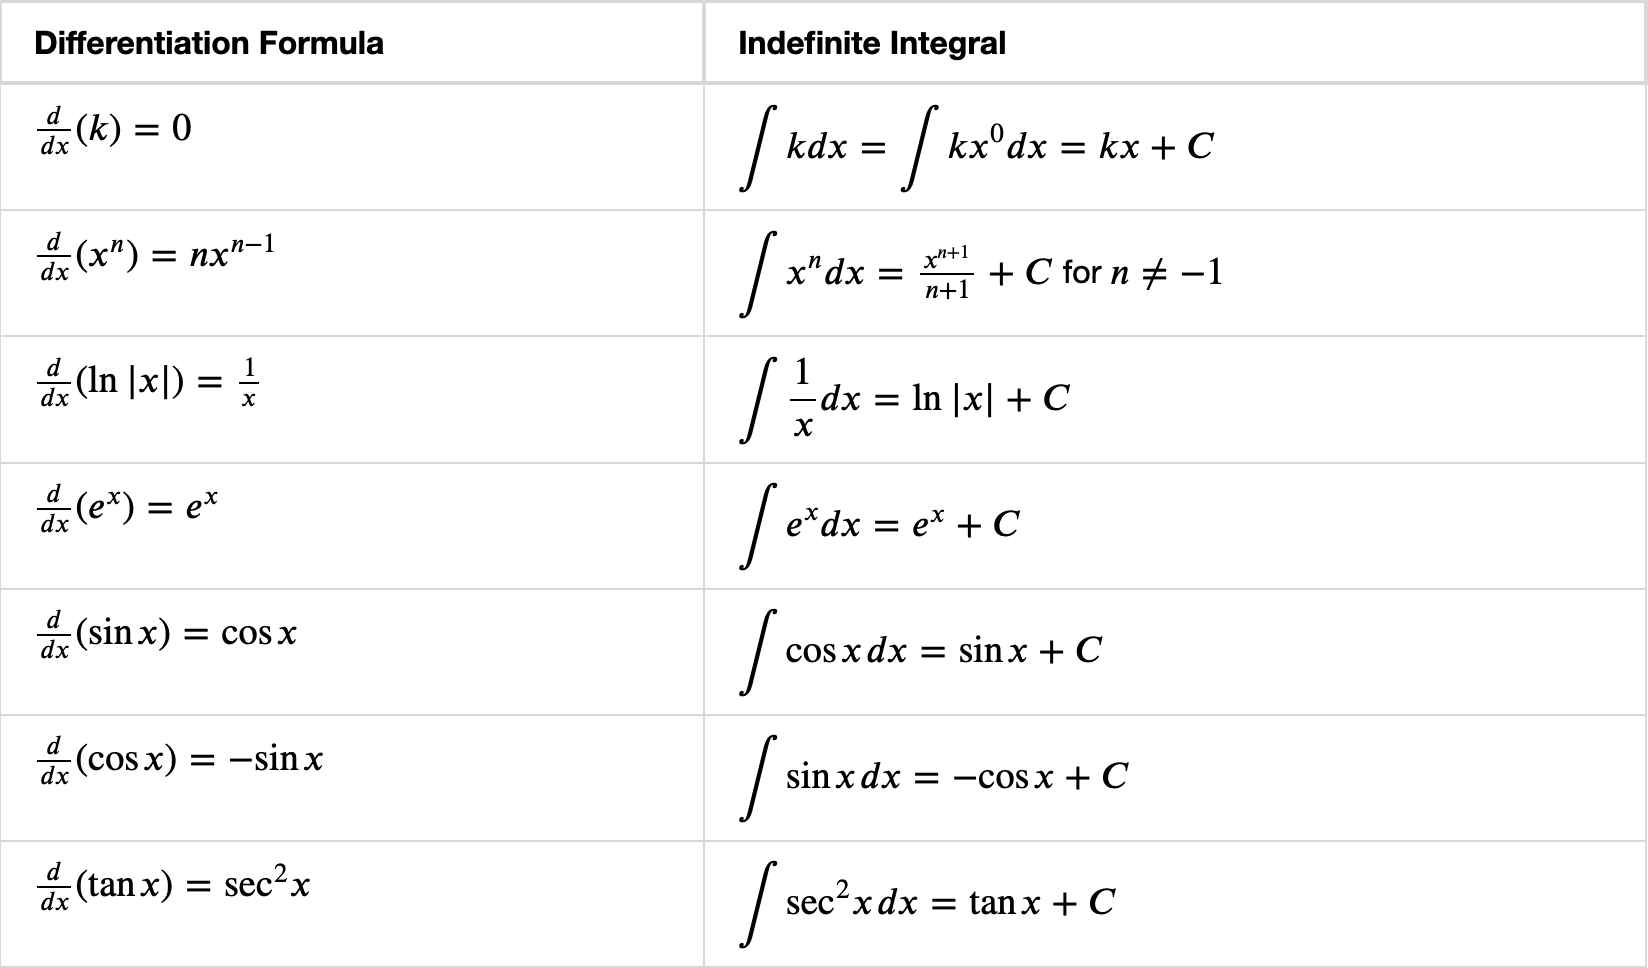 Differentiation Formula | Indefinite Integral
$\frac{d}{dx}(k) = 0$ | $\int k dx = \int kx^0 dx = kx + C$
$\frac{d}{dx}(x^n) = nx^{n-1}$ | $\int x^n dx = \frac{x^{n+1}}{n+1} + C$ for $n \neq -1$
$\frac{d}{dx}(\ln |x|) = \frac{1}{x}$ | $\int \frac{1}{x} dx = \ln |x| + C$
$\frac{d}{dx}(e^x) = e^x$ | $\int e^x dx = e^x + C$
$\frac{d}{dx}(\sin x) = \cos x$ | $\int \cos x \, dx = \sin x + C$
$\frac{d}{dx}(\cos x) = -\sin x$ | $\int \sin x \, dx = -\cos x + C$
$\frac{d}{dx}(\tan x) = \sec^2 x$ | $\int \sec^2 x \, dx = \tan x + C$